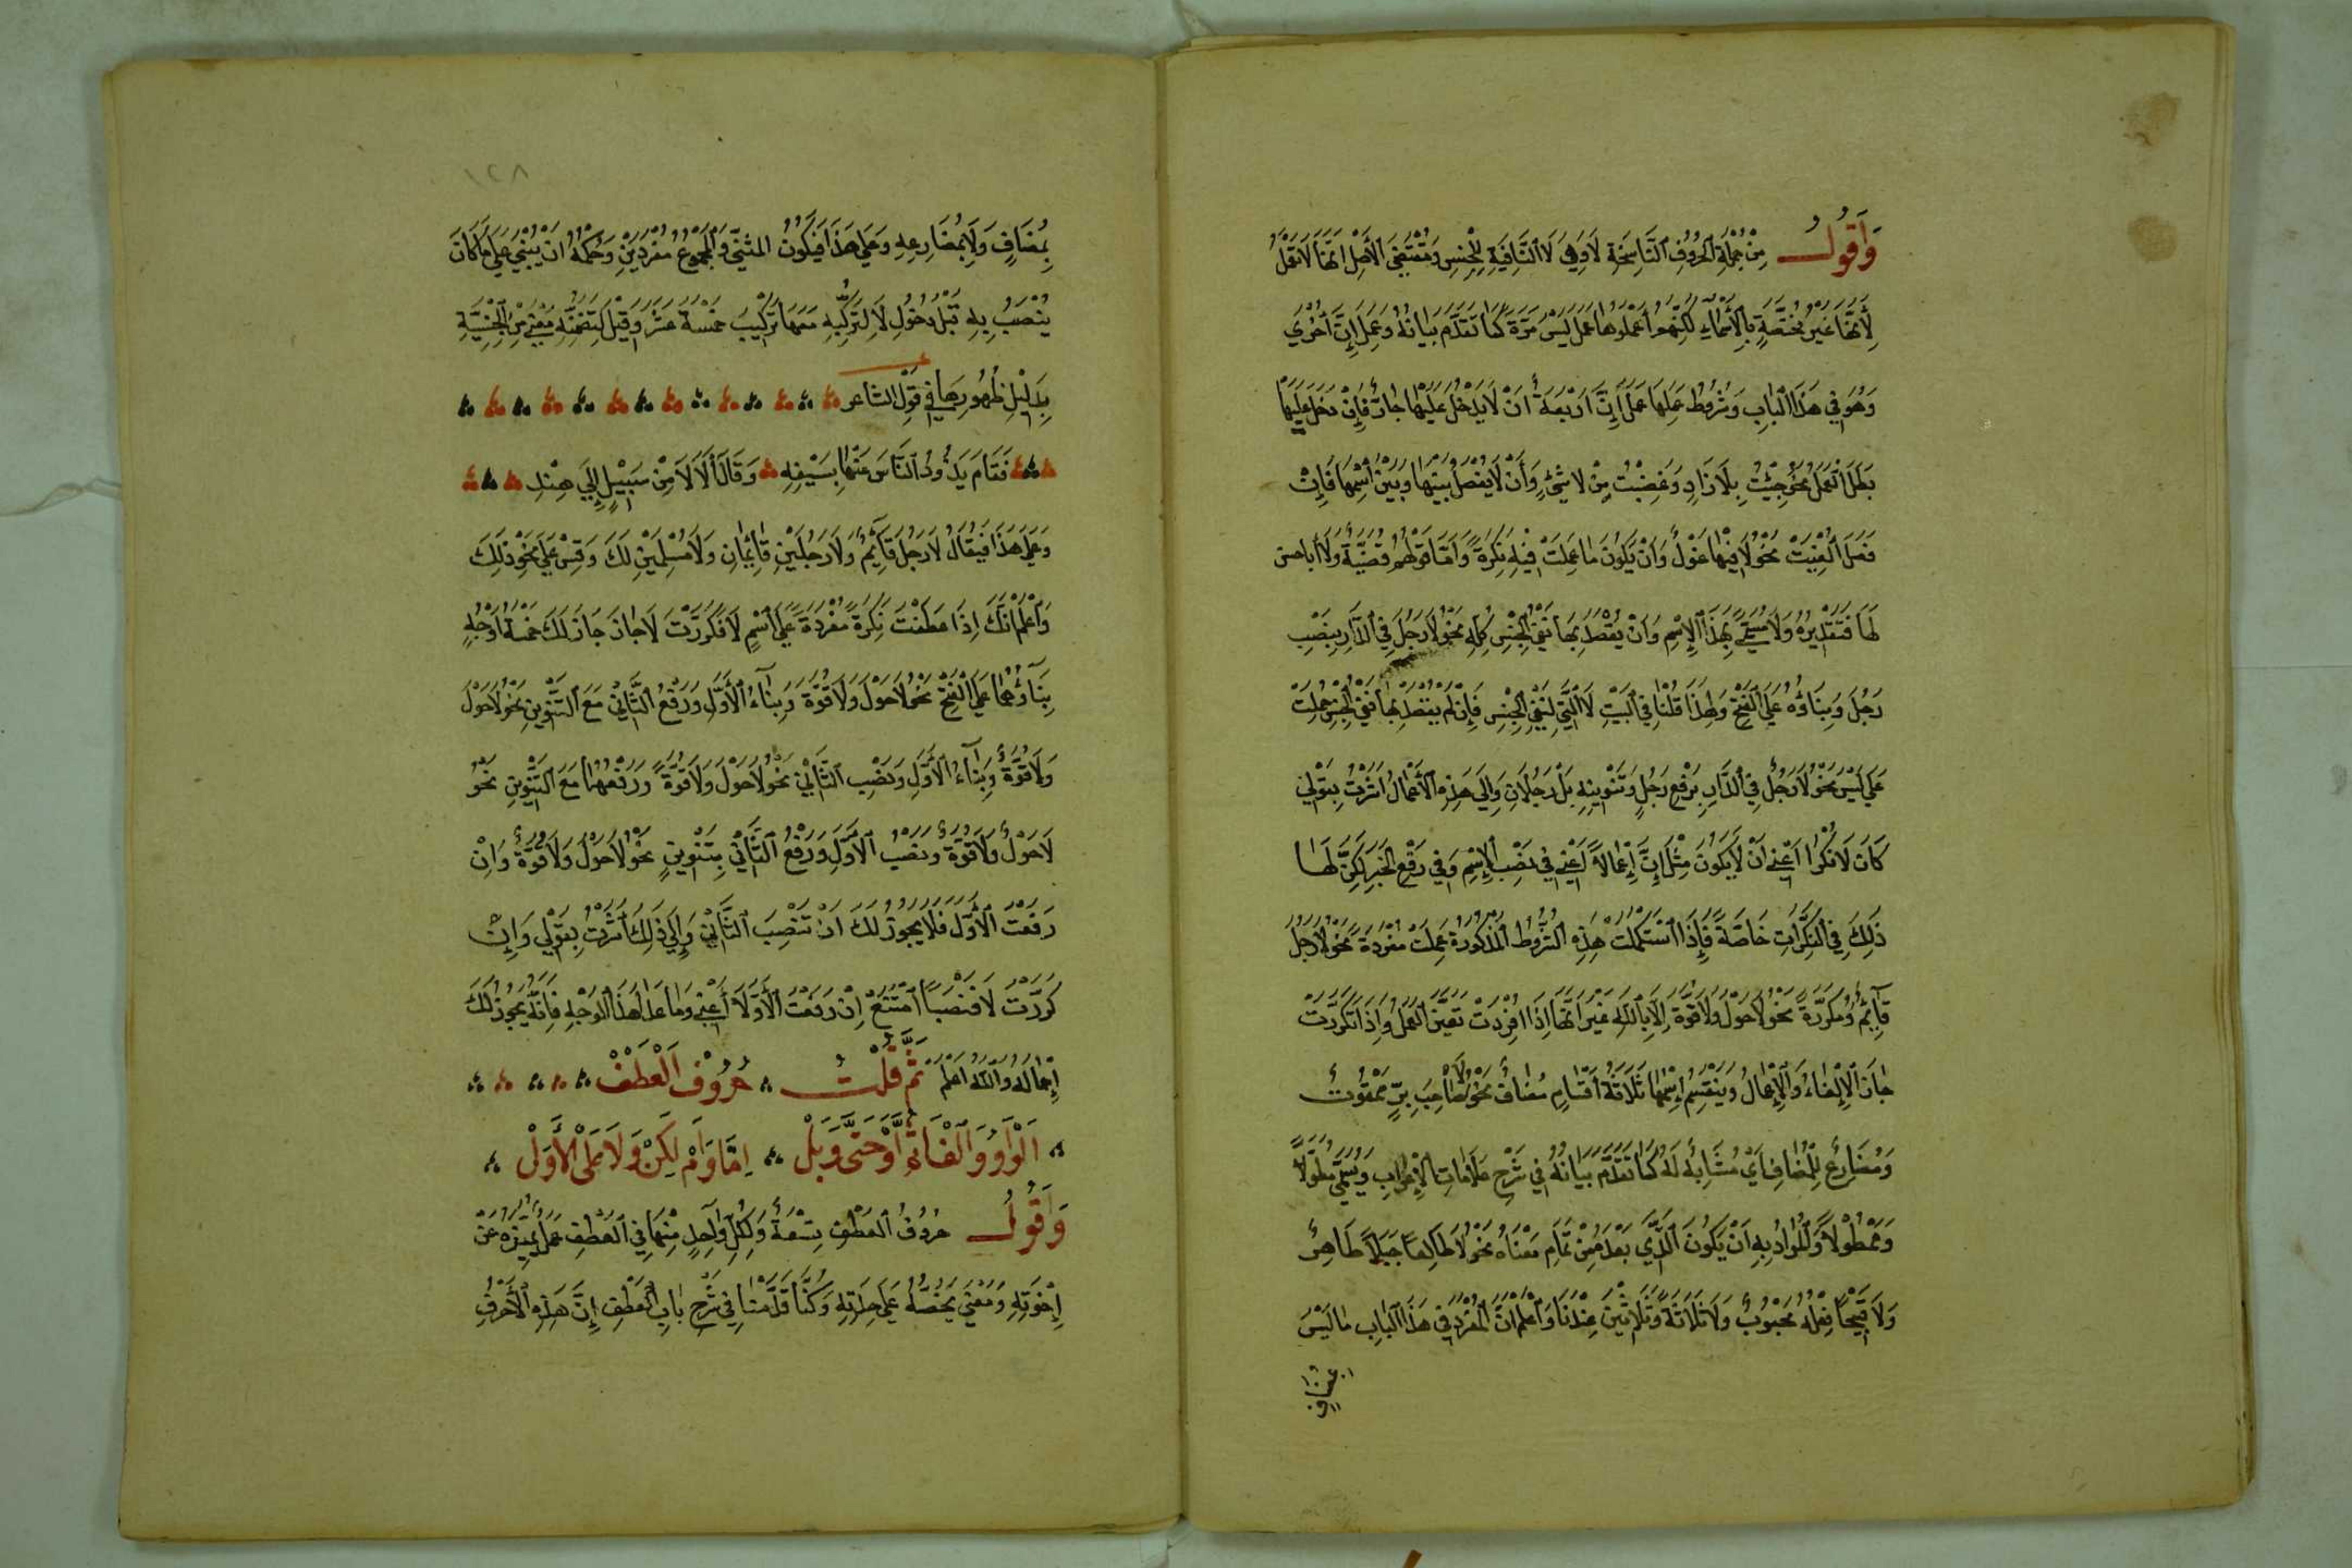 وَأَقُولُ مِنْ جُمْلَةِ الحُرُوفِ النَّاسِخَةِ لَا وَهِيَ لَا النَّافِيَةِ لِلْجِنْسِ وَمُقْتَضَى الأَصْلِ أَنَّهَا لَا تَعْمَلُ
لِأَنَّهَا غَيْرُ مُخْتَصَّةٍ بِالْأَسْمَاءِ لَكِنَّهُمْ أَعْمَلُوهَا عَمَلَ لَيْسَ مَرَّةً كَمَا تَقَدَّمَ بَيَانُهُ وَعَمَلَ إِنَّ أُخْرَى
وَهُوَ فِي هَذَا الْبَابِ وَشُرُوطُ عَمَلِهَا عَمَلَ إِنَّ أَرْبَعَةٌ أَنْ لَا يَدْخُلَ عَلَيْهَا جَارٌّ فَإِنْ دَخَلَ عَلَيْهَا
بَطَلَ الْعَمَلُ نَحْوُ جِئْتُ بِلَا زَادٍ وَغَضِبْتُ مِنْ لَا شَيْءٍ وَأَنْ لَا يُفْصَلَ بَيْنَهَا وَبَيْنَ اسْمِهَا فَإِنْ
فُصِلَ أُلْغِيَتْ نَحْوُ لَا فِيْهَا غَوْلٌ وَأَنْ يَكُونَ مَا عَمِلَتْ فِيْهِ نَكِرَةً وَأَمَّا قَوْلُهُمْ قَضِيَّةٌ وَلَا أَبَا حسن
لَهَا فَتَقْدِيْرُهُ وَلَا مُسَمَّى بِهَذَا الْإِسْمِ وَأَنْ يُقْصَدَ بِهَا نَفْيُ الْجِنْسِ كُلِّهِ نَحْوُ لَا رَجُلَ فِي الدَّارِ بِنَصْبِ
رَجُلَ وَبِنَاؤُهُ عَلَى الْفَتْحِ وَلِهَذَا قُلْنَا فِي الْبَيْتِ لَا الَّتِي لِنَفْيِ الْجِنْسِ فَإِنْ لَمْ يُقْصَدْ بِهَا نَفْيُ الْجِنْسِ عَمِلَتْ
عَمَلَ لَيْسَ نَحْوُ لَا رَجُلٌ فِي الدَّارِ بِرَفْعِ رَجُلٍ وَتَنْوِيْنِهِ بَلْ رَجُلَانِ وَإِلَى هَذِهِ الْأَعْمَالِ أَشَرْتُ بِقَوْلِي
كَانَ لَا نُكْرًا أَعْنِي أَنْ لَا يَكُونَ مِثْلَ إِنَّ إِعْمَالًا أَعْنِي فِي نَصْبِ الْإِسْمِ وَفِي رَفْعِ الْخَبَرِ لَكِنَّ لَهَا
ذَلِكَ فِي النَّكِرَاتِ خَاصَّةً فَإِذَا اسْتَكْمَلَتْ هَذِهِ الشُّرُوطَ الْمَذْكُورَةَ عَمِلَتْ مُفْرَدَةً نَحْوُ لَا رَجُلَ
قَآئِمٌ وَمُكَرَّرَةً نَحْوُ لَا حَوْلَ وَلَا قُوَّةَ إِلَّا بِاللَّهِ غَيْرَ أَنَّهَا إِذَا أُفْرِدَتْ تَعَيَّنَ الْعَمَلُ وَإِذَا تَكَرَّرَتْ
جَازَ الْإِلْغَاءُ وَالْإِعْمَالُ وَيَنْقَسِمُ إِسْمُهَا ثَلَاثَةَ أَقْسَامٍ مُضَافٌ نَحْوُ لَا صَاحِبَ بِرٍّ مَمْقُوتٌ
وَمُضَارِعٌ لِلْمُضَافِ أَيْ مُشَابِهٌ لَهُ كَمَا تَقَدَّمَ بَيَانُهُ فِي شَرْحِ عَلَامَاتِ الْإِعْرَابِ وَيُسَمَّى مُطَوَّلًا
وَمَمْطُولًا وَالْمُرَادُ بِهِ أَنْ يَكُونَ الَّذِي بَعْدَهُ مِنْ تَمَامِ مَعْنَاهُ نَحْوُ لَا طَالِعًا جَبَلًا ظَاهِرٌ
وَلَا قَبِيْحًا فِعْلُهُ مَحْبُوبٌ وَلَا ثَلَاثَةً وَثَلَاثِيْنَ عِنْدَنَا وَاعْلَمْ أَنَّ الْمُفْرَدَ فِي هَذَا الْبَابِ مَا لَيْسَ
بمضافٍ
١٢٨
بِمُضَافٍ وَلَا بِمُضَارِعِهِ وَعَلَى هَذَا فَيَكُونُ المثنَّى وَالْمَجْمُوعُ مُفْرَدَيْنِ وَحُكْمُهُ أَنْ يُبْنَى عَلَى مَا كَانَ
يُنْصَبُ بِهِ قَبْلَ دُخُولِ لَا لِتَرَكُّبِهِ مَعَهَا تَرْكِيْبَ خَمْسَةَ عَشَرَ وَقِيْلَ لِتَضَمُّنِهِ مَعْنَى مِنْ الْجِنْسِيَّةِ
بِدَلِيْلِ ظُهُورِهَا فِي قَوْلِ الشاعر
فَقَامَ يَذُودُ النَّاسَ عَنْهَا بِسَيْفِهِ وَقَالَ أَلَا لَا مِنْ سَبِيْلٍ إِلَى هِنْدِ
وَعَلَى هَذَا فَيُقَالُ لَا رَجُلَ قَآئِمٌ وَلَا رَجُلَيْنِ قَائِمَانِ وَلَا مُسْلِمَيْنِ لَكَ وَقِسْ عَلَى نَحْوِ ذَلِكَ
وَاعْلَمْ أَنَّكَ إِذَا عَطَفْتَ نَكِرَةً مُفْرَدَةً عَلَى اسْمِ لَا فَكَرَّرْتَ لَا جَازَ جَازَ لَكَ خَمْسَةُ أَوْجُهٍ
بِنَآؤُهُمَا عَلَى الْفَتْحِ نَحْوُ لَا حَوْلَ وَلَا قُوَّةَ وَبِنَآءُ الْأَوَّلِ وَرَفْعُ الثَّانِي مَعَ التَّنْوِينِ نَحْوُ لَا حَوْلَ
وَلَا قُوَّةٌ وَبِنَآءُ الْأَوَّلِ وَنَصْبِ الثَّانِي نَحْوُ لَا حَوْلَ وَلَا قُوَّةً وَرَفْعُهُمَا مَعَ التَّنْوِينِ نَحْوُ
لَا حَوْلٌ وَلَا قُوَّةٌ ونصبُ الْأَوَّلِ وَرَفْعُ الثَّانِي بِتَنْوِينٍ نَحْوُ لَا حَوْلَ وَلَا قُوَّةٌ وَإِنْ
رَفَعْتَ الْأَوَّلَ فَلَا يَجُوزُ لَكَ أَنْ تَنْصِبَ الثَّانِي وَإِلَى ذَلِكَ أَشَرْتُ بِقَوْلِي وَإِنْ
كَرَّرْتَ لَا فَنَصْبًا امْتَنَعْ إِنْ رَفَعْتَ الْأَوَّلَا أَعْنِي وَمَا عَدَا هَذَا الْوَجْهِ فَإِنَّهُ يَجُوزُ لَكَ
إِعْمَالُهُ وَاللَّهُ أَعْلَمُ ثُمَّ قُلْتُ حُرُوْفُ الْعَطْفْ
اَلْوَاوُ وَالْفَاءُ أَوْ حَتَّى وَبَلْ إِمَّا وَأَمْ لَكِنْ وَلَا عَلَى الْأَوَلْ
وَأَقُولُ حُرُوفُ الْعَطْفِ تِسْعَةٌ وَلِكُلِّ وَاحِدٍ مِنْهَا فِي الْعَطْفِ عَمَلٌ يُمَيِّزُهُ عَنْ
إِخْوَتِهِ وَمَعْنًى يَخُصُّهُ عَلَى حِدَتِهِ وَكُنَّا قَدَّمْنَا فِي شَرْحِ بَابِ الْعَطْفِ إِنَّ هَذِهِ الْأَحْرُفِ